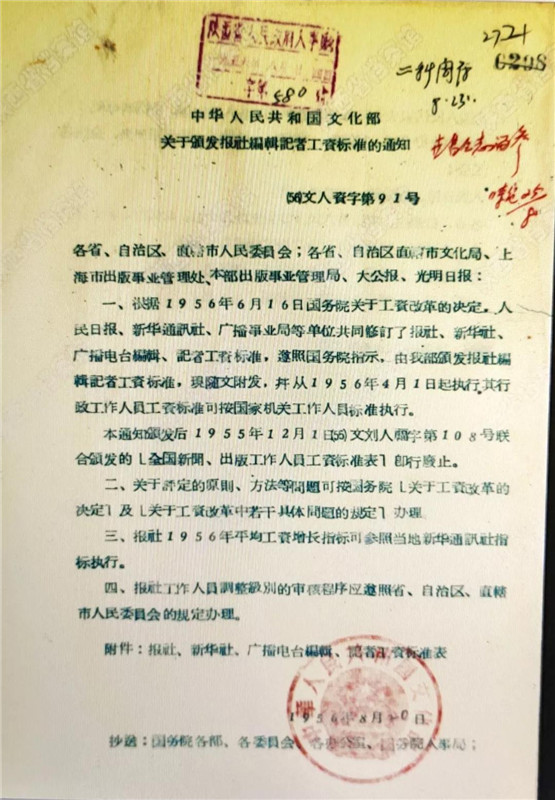 陕西省人民政府人事局
580
2721
6298
二科周存
8.23
中华人民共和国文化部
关于頒发报社編輯記者工資标准的通知
(56)文人資字第91号
各省、自治区、直轄市人民委員会；各省、自治区直轄市文化局、上
海市出版事业管理处、本部出版事业管理局、大公报、光明日报：
一、根据1956年6月16日国务院关于工資改革的决定，人
民日报、新华通訊社、广播事业局等单位共同修訂了报社、新华社、
广播电台編輯、記者工資标准，遵照国务院指示，由我部頒发报社編
輯記者工資标准，現随文附发，并从1956年4月1日起执行其行
政工作人員工資标准可按国家机关工作人員标准执行。
本通知頒发后1955年12月1日(55)文刘人字第108号联
合頒发的［全国新聞、出版工作人員工資标准表］即行廢止。
二、关于評定的原則、方法等問題可按国务院［关于工資改革的
决定］及［关于工資改革中若干具体問題的規定］办理
三、报社1956年平均工資增长指标可参照当地新华通訊社指
标执行。
四、报社工作人員調整級別的审核程序应遵照省、自治区、直轄
市人民委員会的規定办理。
附件：报社、新华社、广播电台編輯、記者工資标准表
中华人民共和国文化部
1956年8月20日
抄送：国务院各部、各委員会、各办公室、国务院人事局；